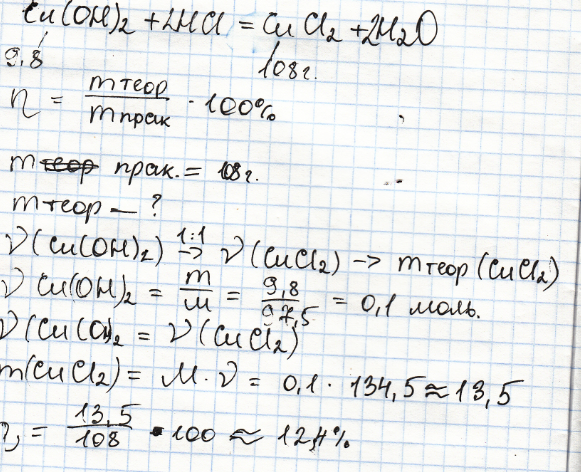 Cu(OH)₂ + 2HCl = CuCl₂ + 2H₂O
9,8 108г.
η = mтеор / mпрак · 100%
m прак. = 108г.
mтеор – ?
ν(Cu(OH)₂) 1:1 → ν(CuCl₂) → mтеор(CuCl₂)
ν Cu(OH)₂ = m / M = 9,8 / 97,5 = 0,1 моль.
ν(Cu(OH)₂ = ν(CuCl₂)
m(CuCl₂) = M · ν = 0,1 · 134,5 ≈ 13,5
η = 13,5 / 108 · 100 ≈ 12,4%